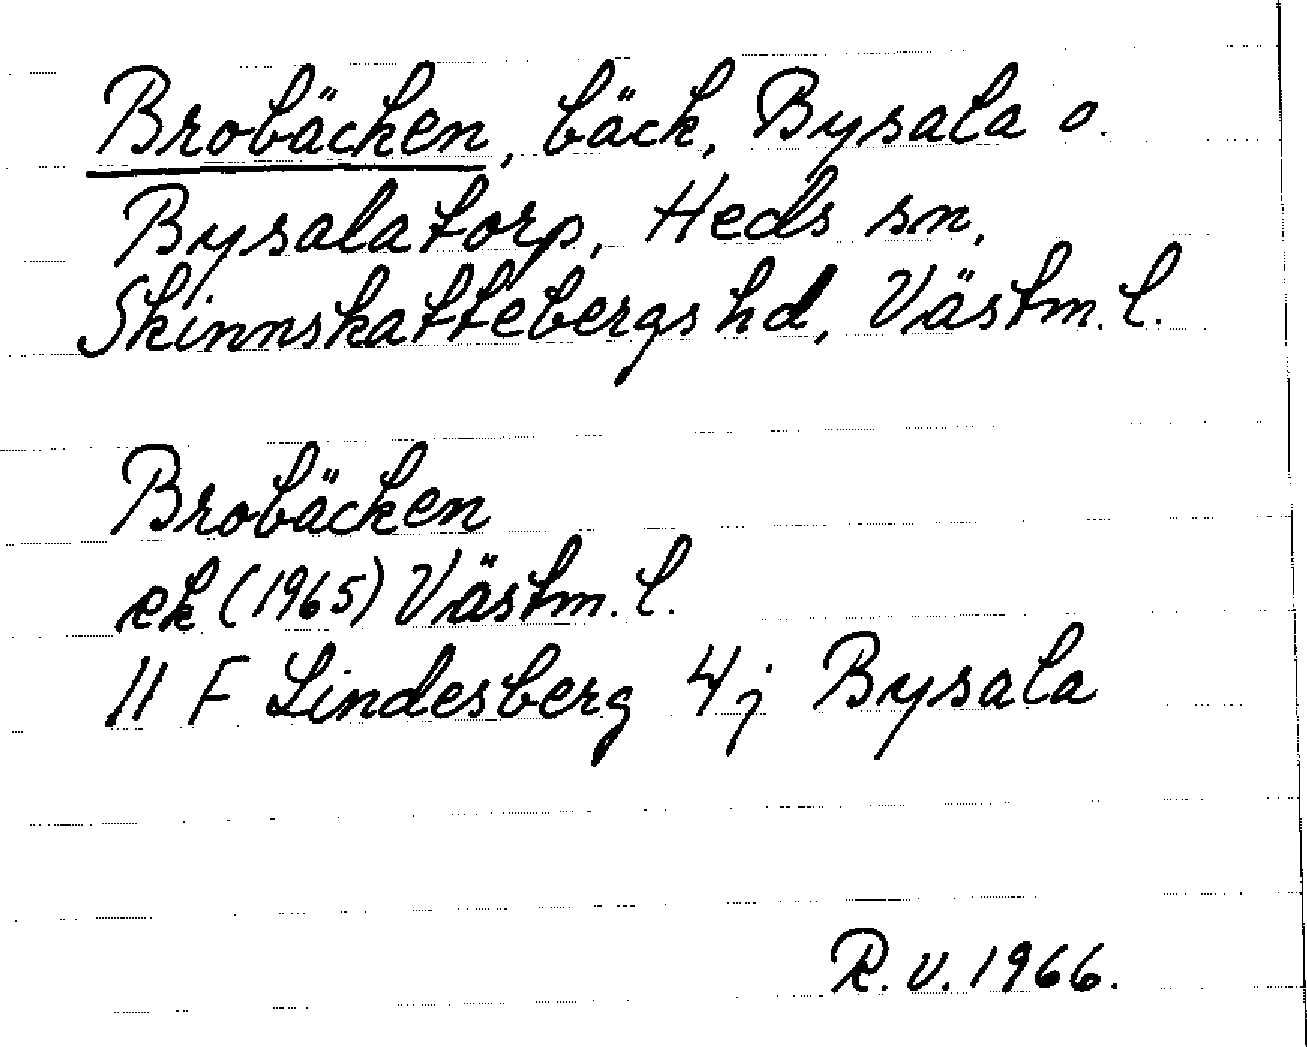 Brobäcken, bäck, Bysala o.
Bysalatorp, Heds sn,
Skinnskattebergs hd, Västm. l.
Brobäcken
ek (1965) Västm. l.
11 F Lindesberg 4j Bysala
R. v. 1966.